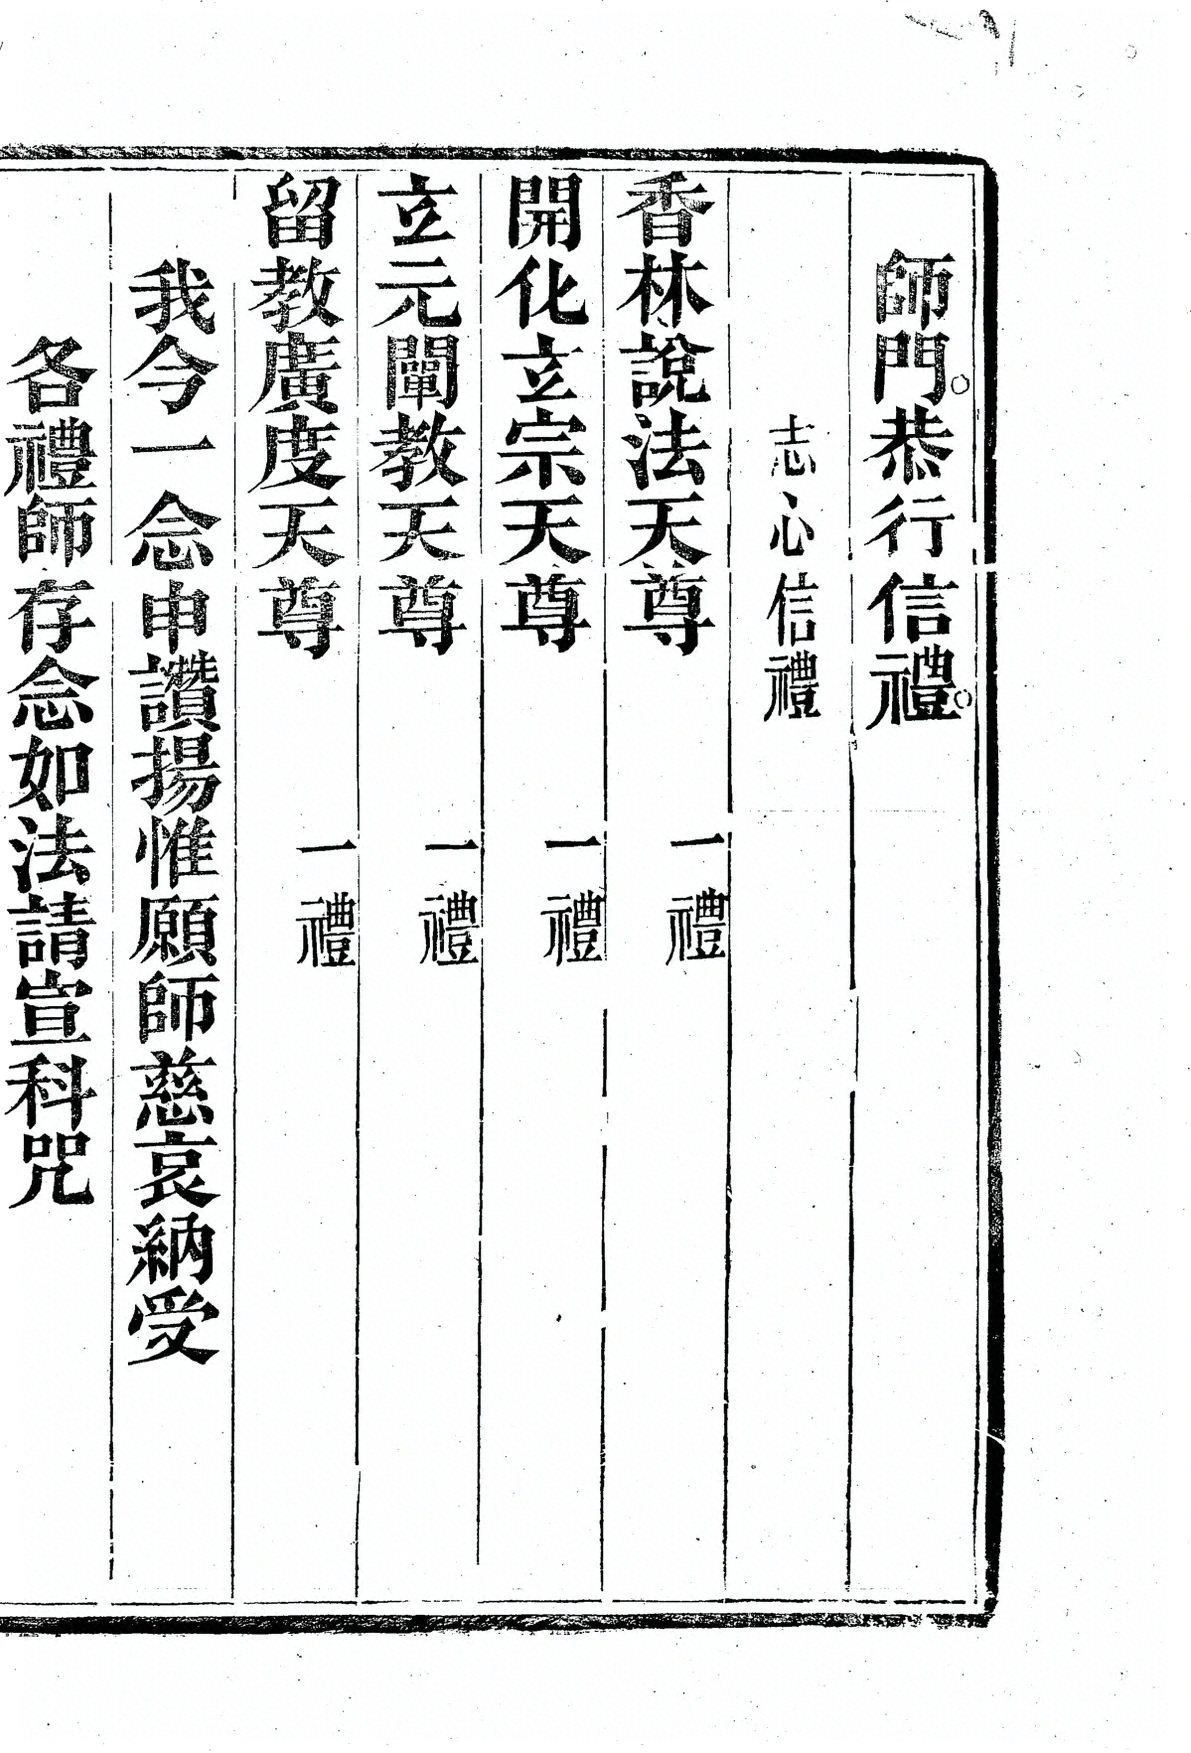 師門。恭行信禮。
志心信禮
香林說法天尊 一禮
開化立宗天尊 一禮
立元闡教天尊 一禮
留教廣度天尊 一禮
我今一念申讚揚惟願師慈哀納受
各禮師存念如法請宣科咒